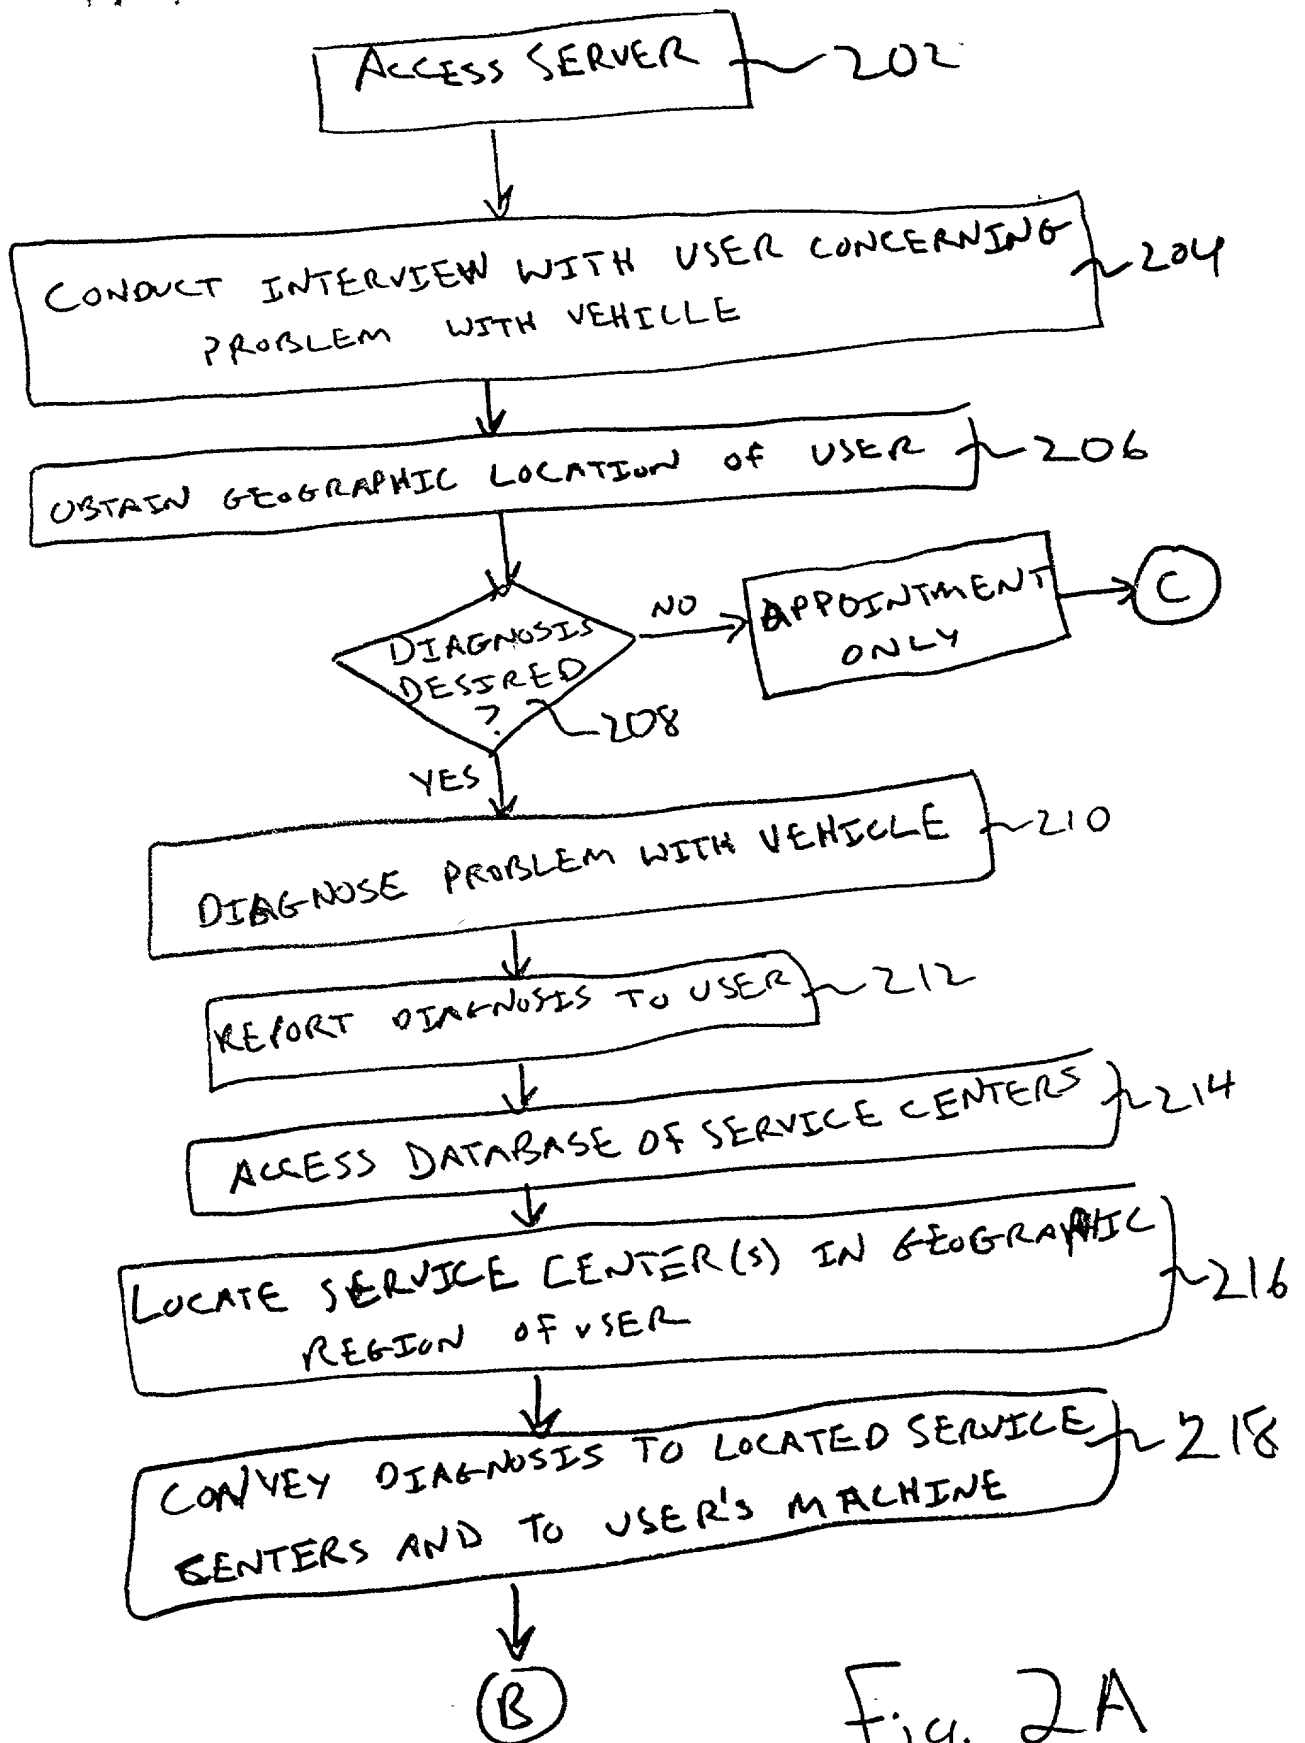 ACCESS SERVER 202
CONDUCT INTERVIEW WITH USER CONCERNING 204
PROBLEM WITH VEHICLE
OBTAIN GEOGRAPHIC LOCATION OF USER 206
DIAGNOSIS
DESIRED
?
208
NO
APPOINTMENT
ONLY
C
YES
DIAGNOSE PROBLEM WITH VEHICLE 210
REPORT DIAGNOSIS TO USER 212
ACCESS DATABASE OF SERVICE CENTERS 214
LOCATE SERVICE CENTER(S) IN GEOGRAPHIC
REGION OF USER
216
CONVEY DIAGNOSIS TO LOCATED SERVICE 218
CENTERS AND TO USER'S MACHINE
B
Fig. 2A